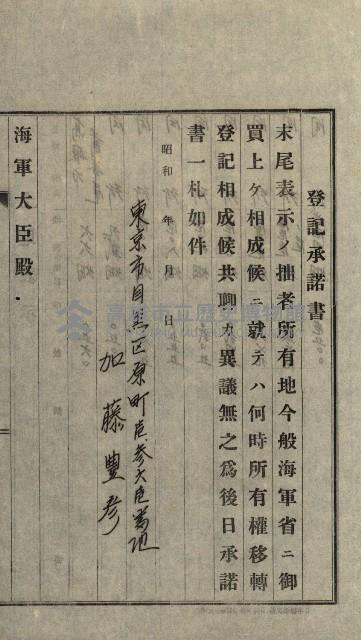 登記承諾書
末尾表示ノ拙者所有地今般海軍省ニ御
買上ケ相成候ニ就テハ何時所有權移轉
登記相成候共聊カ異議無之爲後日承諾
書一札如件
昭和 年 月 日
東京市目黒区原町
加藤豊彦
海軍大臣殿
高雄市立歷史博物館